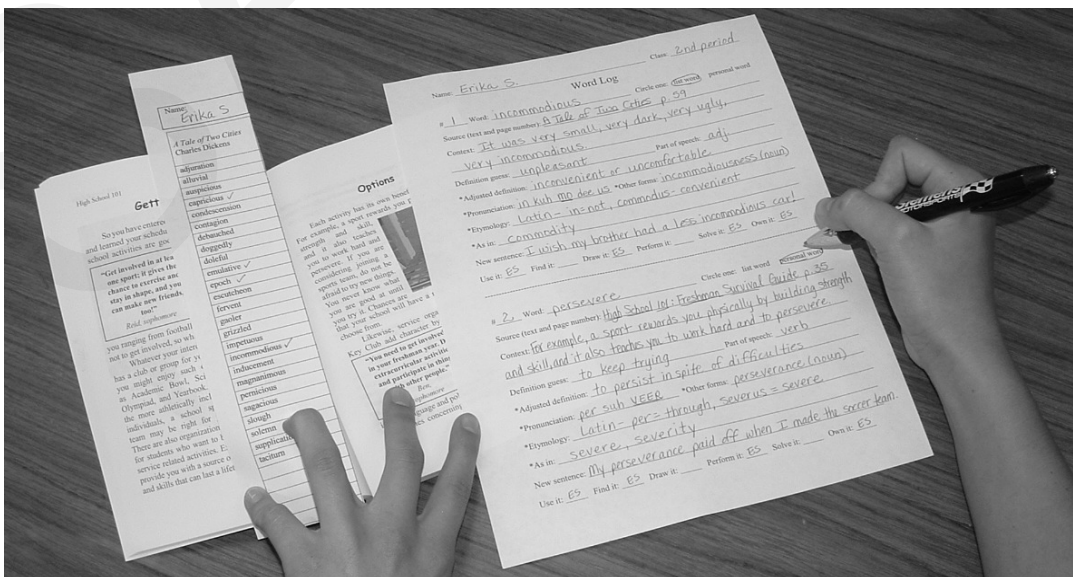 High School 101
Gett
So you have entere
and learned your schedu
school activities are goo
"Get involved in at lea
one sport; it gives the
chance to exercise and
stay in shape, and you
can make new friends,
too!"
Reid, sophomore
you ranging from football
not to get involved, so wh
Whatever your inter
has a club or group for yo
you might enjoy such
as Academic Bowl, Sci
Olympiad, and Yearbook.
the more athletically incl
individuals, a school sp
team may be right for
There are also organization
for students who want to
service related activities. E
provide you with a source o
and skills that can last a lifet
Name:
Erika S
A Tale of Two Cities
Charles Dickens
adjuration
alluvial
auspicious
capricious ✓
condescension
contagion
debauched
doggedly
doleful
emulative ✓
epoch ✓
escutcheon
fervent
gaoler
grizzled
impetuous
incommodious ✓
inducement
magnanimous
pernicious
sagacious
slough
solemn
supplicati
taciturn
Options
Each activity has its own benef
For example, a sport rewards you p
strength and skill,
and it also teaches
you to work hard and
persevere. If you are
considering joining a
sports team, do not be
afraid to try new things.
You never know what
you are good at until
you try it. Chances are
that your school will have a
choose from.
Likewise, service orga
Key Club add character by
"You need to get involved
in your freshman year. D
extracurricular activitie
and participate in thin
other people."
Ben,
sophomore
nguage and po
es concerning
Name: Erika S. Class: 2nd period
Word Log
# 1 Word: incommodious Circle one: list word personal word
Source (text and page number): A Tale of Two Cities p. 59
Context: It was very small, very dark, very ugly,
very incommodious.
Definition guess: unpleasant Part of speech: adj
*Adjusted definition: inconvenient or uncomfortable
*Pronunciation: in kuh mo dee us *Other forms: incommodiousness (noun)
*Etymology: Latin - in=not, commodus- convenient
*As in: commodity
New sentence: I wish my brother had a less incommodious car!
Use it: ES Find it: Draw it: ES Perform it: Solve it: ES Own it: ES
# 2. Word: persevere Circle one: list word personal word
Source (text and page number): High School 101: Freshman Survival Guide p. 35
Context: For example, a sport rewards you physically by building strength
and skill, and it also teaches you to work hard and to persevere.
Definition guess: to keep trying Part of speech: verb
*Adjusted definition: to persist in spite of difficulties
*Pronunciation: per suh VEER *Other forms: perseverance (noun)
*Etymology: Latin - per= through, severus = severe
*As in: severe, severity
New sentence: My perseverance paid off when I made the soccer team.
Use it: ES Find it: ES Draw it: Perform it: ES Solve it: Own it: ES